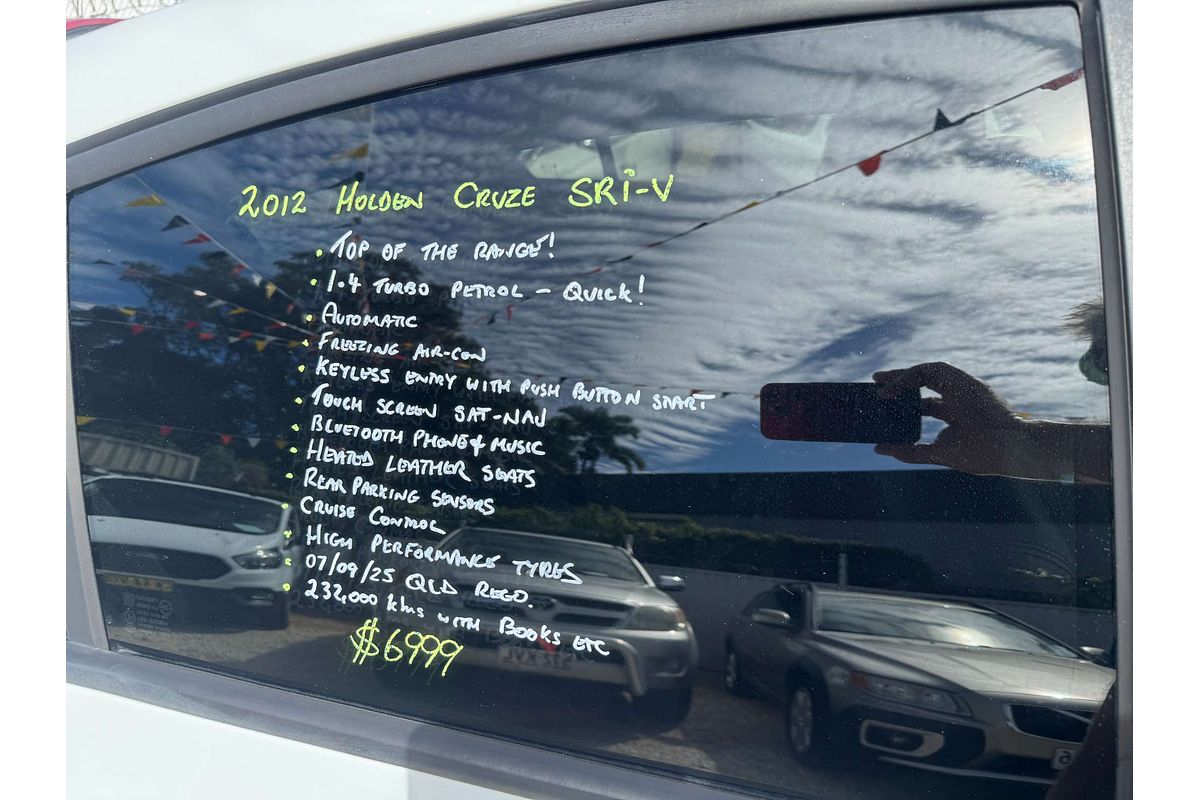 2012 HOLDEN CRUZE SRi-V
• TOP OF THE RANGE!
• 1.4 TURBO PETROL - QUICK!
• AUTOMATIC
• FREEZING AIR-CON
• KEYLESS ENTRY WITH PUSH BUTTON START
• TOUCH SCREEN SAT-NAV
• BLUETOOTH PHONE & MUSIC
• HEATED LEATHER SEATS
• REAR PARKING SENSORS
• CRUISE CONTROL
• HIGH PERFORMANCE TYRES
• 07/09/25 QLD REGO.
• 232,000 kms WITH BOOKS ETC
$6999